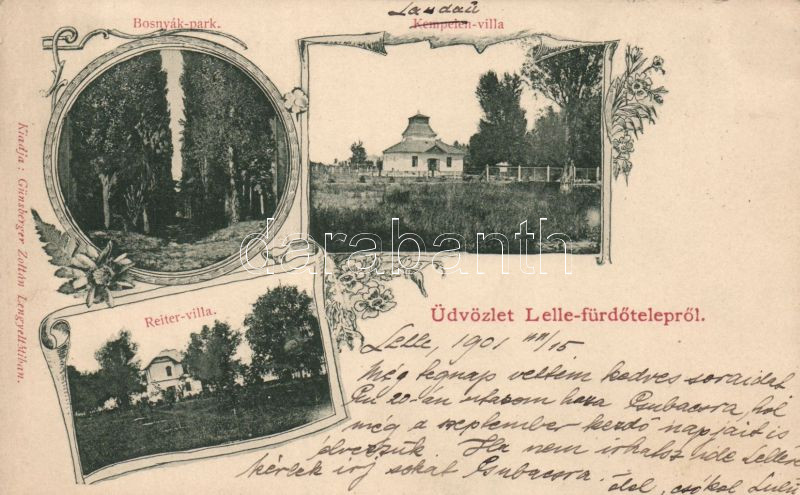 Landau
Bosnyák-park.
Kempelen-villa
Kiadja: Günsberger Zoltán Lengyeltótiban.
darabanth
Reiter-villa.
Üdvözlet Lelle-fürdőtelepről.
Lelle, 1901 VIII/15
Még tegnap vettem kedves soraidat
Én 20-án utazom haza Csubacsra, hol
még a szeptember kezdő napjait is
élvezzük. Ha nem írhatsz ide Lellére
kérlek írj sokat Csubacsra.
ölel, csókol